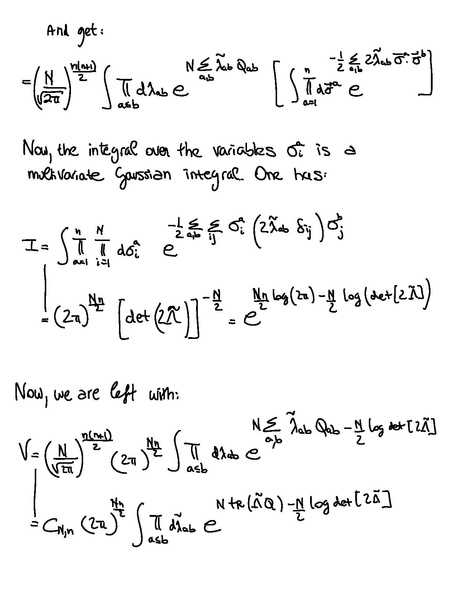 And get:
= (N/√2π)^{n(n+1)/2} ∫ ∏_{a≤b} dλ_{ab} e^{N Σ_{a,b} λ̃_{ab} Q_{ab}} [∫ ∏_{a=1}^{n} dσ⃗^a e^{-1/2 Σ_{a,b} 2λ̃_{ab} σ⃗^a·σ⃗^b}]
Now, the integral over the variables σ_i^a is a
multivariate Gaussian integral. One has:
I = ∫ ∏_{a=1}^{n} ∏_{i=1}^{N} dσ_i^a e^{-1/2 Σ_{a,b} Σ_{ij} σ_i^a (2λ̃_{ab} δ_{ij}) σ_j^b}
= (2π)^{Nn/2} [det(2Λ̃)]^{-N/2} = e^{Nn/2 log(2π) - N/2 log(det[2Λ̃])}
Now, we are left with:
V = (N/√2π)^{n(n+1)/2} (2π)^{Nn/2} ∫ ∏_{a≤b} dλ_{ab} e^{N Σ_{a,b} λ̃_{ab} Q_{ab} - N/2 log det[2Λ̃]}
= C_{N,n} (2π)^{Nn/2} ∫ ∏_{a≤b} dλ̃_{ab} e^{N tr(Λ̃Q) - N/2 log det[2Λ̃]}